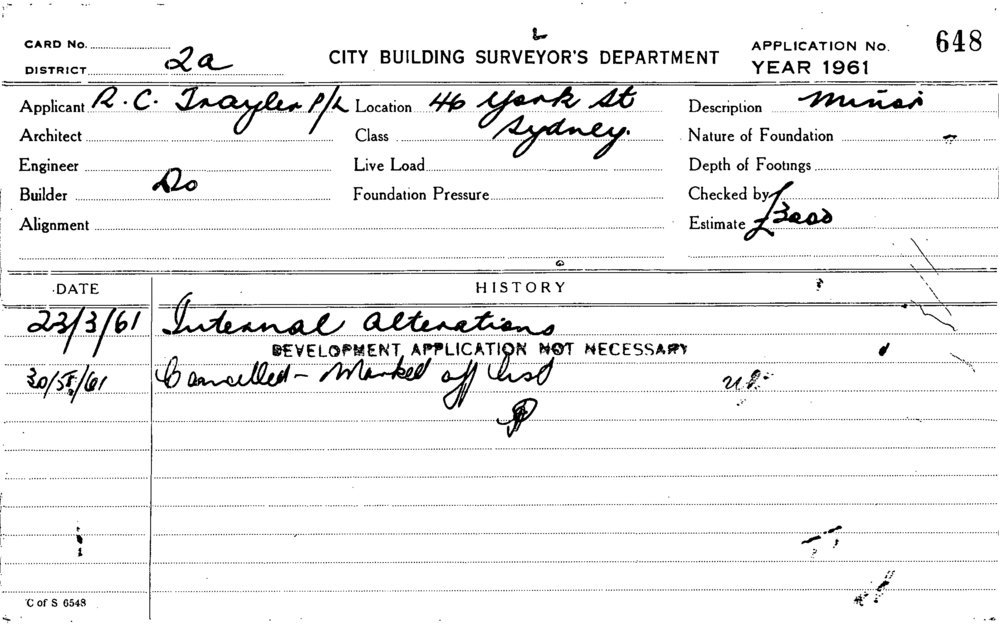 CARD No.
DISTRICT 2a
CITY BUILDING SURVEYOR'S DEPARTMENT
APPLICATION No. 648
YEAR 1961
Applicant R. C. Trayler P/L
Location 46 York St
Sydney.
Description Minor
Architect
Class
Nature of Foundation
Engineer
Live Load
Depth of Footings
Builder Do
Foundation Pressure
Checked by
Alignment
Estimate £3000
DATE HISTORY
23/3/61 Internal alterations
DEVELOPMENT APPLICATION NOT NECESSARY
30/5/61 Cancelled - Marked off list
C of S 6548